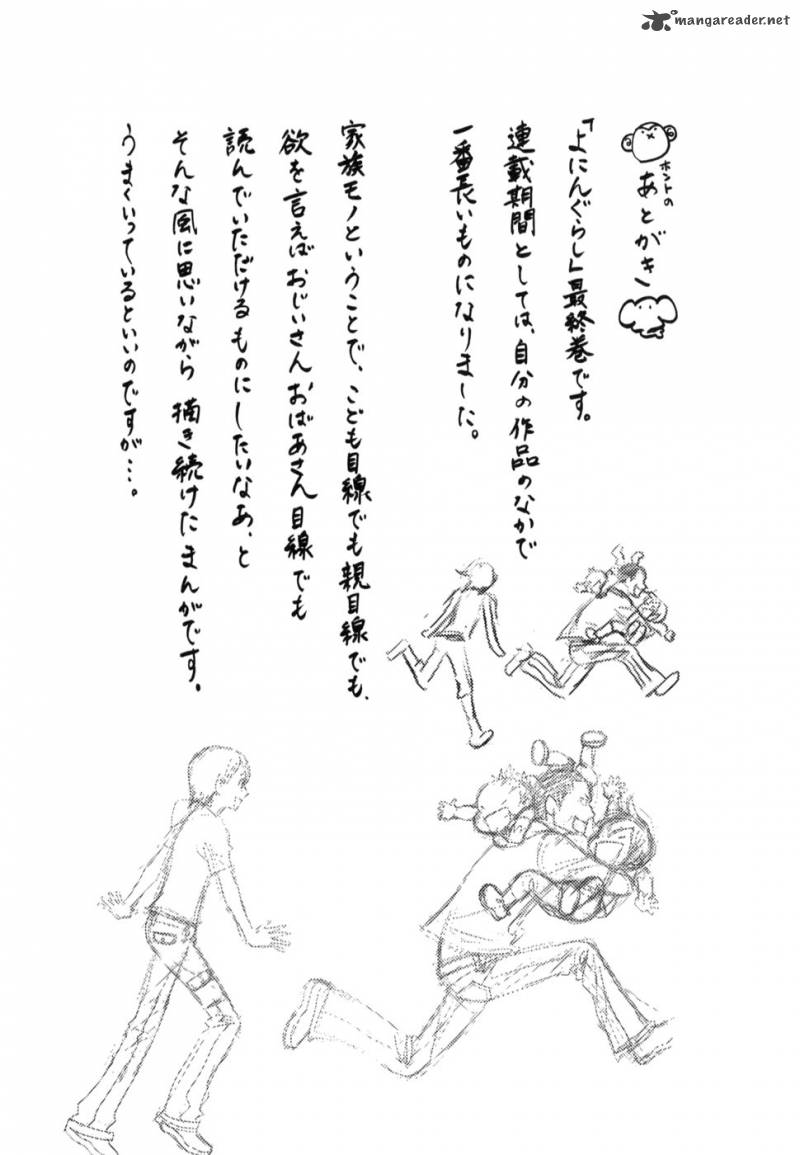 mangareader.net
ホントの
あとがき
「よにんぐらし」最終巻です。
連載期間としては、自分の作品のなかで
一番長いものになりました。
家族モノということで、こども目線でも親目線でも、
欲を言えばおじいさんおばあさん目線でも
読んでいただけるものにしたいなあ、と
そんな風に思いながら描き続けたまんがです。
うまくいっているといいのですが…。